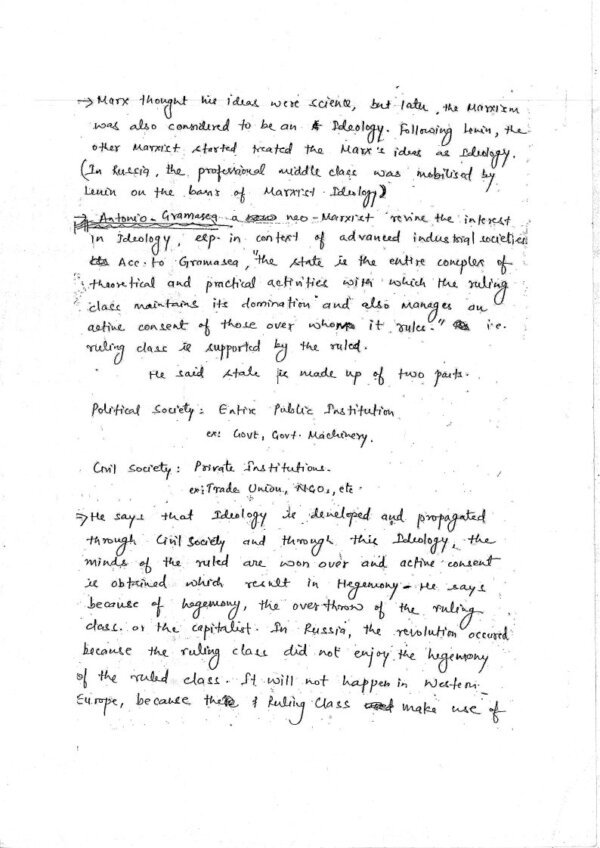 → Marx thought his ideas were science, but later, the Marxism
was also considered to be an Ideology. Following Lenin, the
other Marxist started treated the Marx's ideas as Ideology.
(In Russia, the professional middle class was mobilised by
Lenin on the basis of Marxist Ideology)
→ Antonio-Gramasea a neo-Marxist revine the interest
in Ideology, esp. in context of advanced industrial societies
Acc. to Gramasea, "the state is the entire complex of
theoretical and practical activities with which the ruling
class maintains its domination and also manages an
active consent of those over whom it rules." i.e.
ruling class is supported by the ruled.
He said state is made up of two parts.
Political Society: Entire Public Institution
ex: Govt, Govt. Machinery.
Civil Society: Private Institutions.
ex: Trade Union, NGOs, etc.
⇒ He says that Ideology is developed and propagated
through Civil Society and through this Ideology, the
minds of the ruled are won over and active consent
is obtained which result in Hegemony - He says
because of hegemony, the over throw of the ruling
class. or the capitalist. In Russia, the revolution occured
because the ruling class did not enjoy the hegemony
of the ruled class. It will not happen in Western
Europe, because the Ruling Class make use of